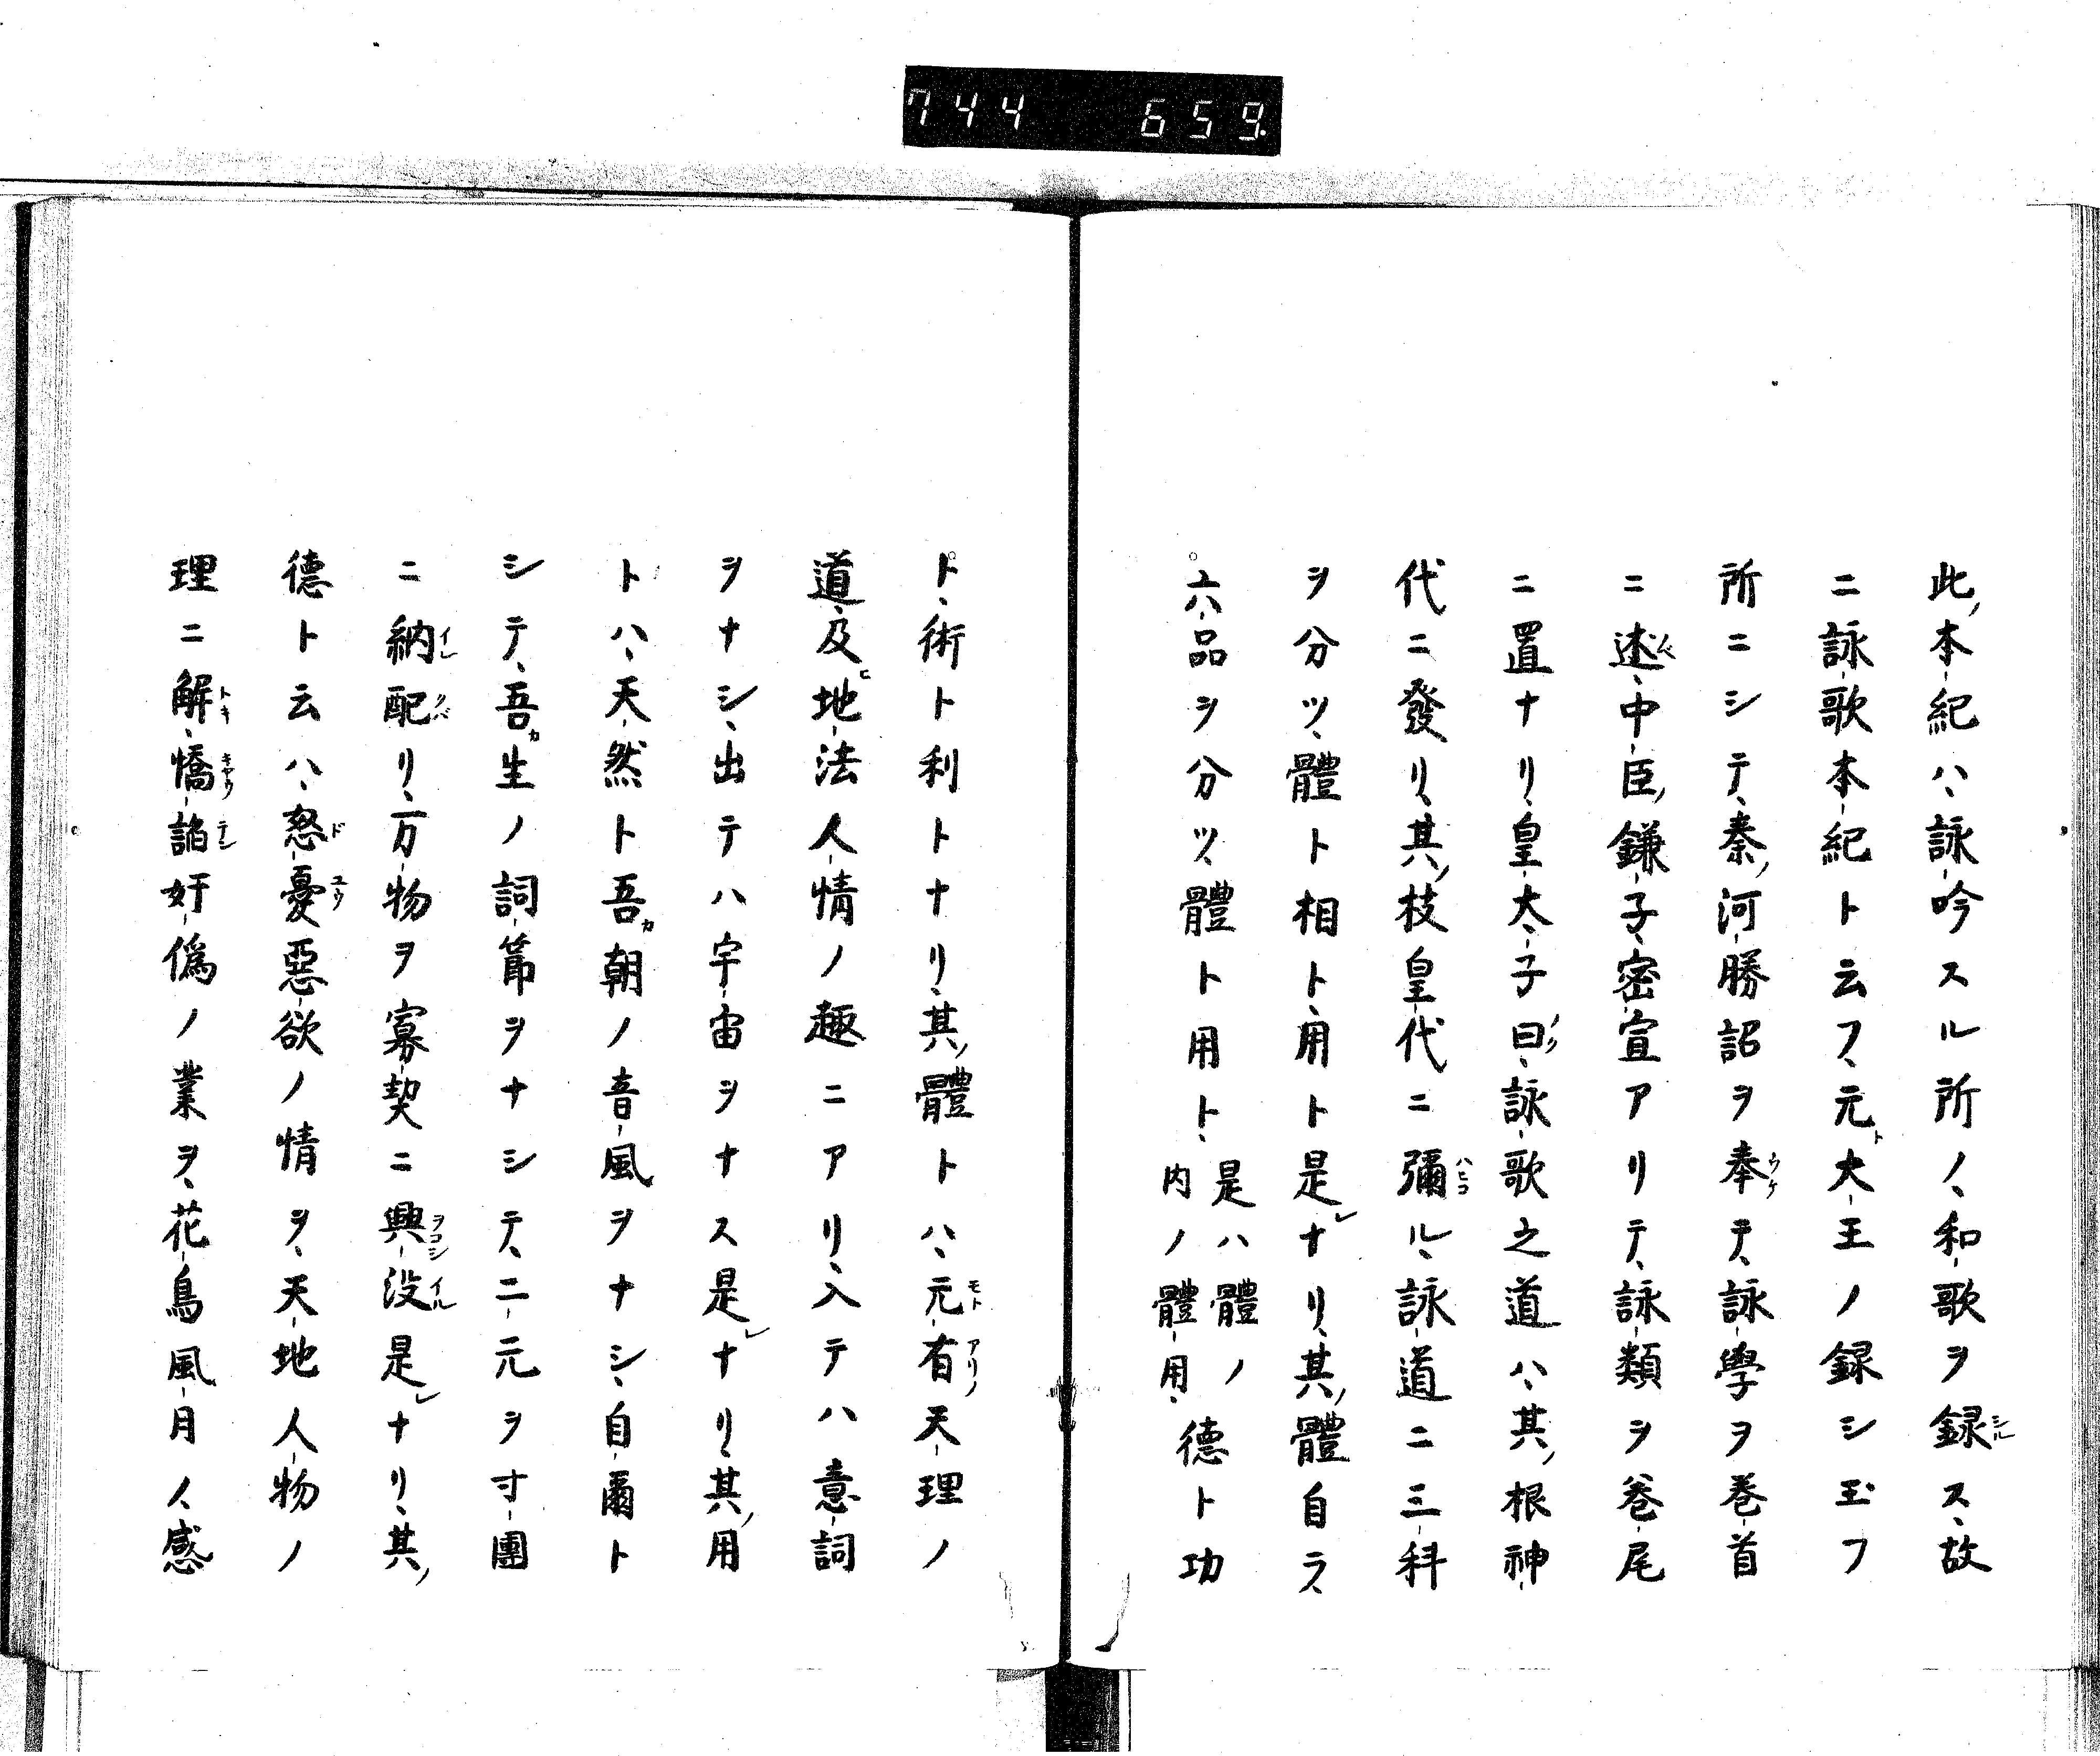 744 659.
此ノ本紀ハ、詠吟スル所ノ、和歌ヲ録ス、故
ニ詠歌本紀ト云フ、元ト大王ノ録シ玉フ
所ニシテ、秦ノ河勝詔ヲ奉テ、詠學ヲ巻首
ニ述、中臣ノ鎌子、密宣アリテ、詠類ヲ巻尾
ニ置ナリ、皇太子曰、詠歌之道ハ、其ノ根神
代ニ發リ、其ノ枝皇代ニ彌ル、詠道ニ三科
ヲ分ツ、體ト相ト、用ト是レナリ、其ノ體自ラ、
六品ヲ分ツ、體ト用ト、是ハ體ノ内ノ體用、德ト功
ト、術ト利トナリ、其ノ體トハ、元有天理ノ
道、及ヒ地法人情ノ趣ニアリ、入テハ意詞
ヲナシ、出テハ宇宙ヲナス是レナリ、其ノ用
トハ、天然ト吾カ朝ノ音風ヲナシ、自爾ト
シテ、吾カ生ノ詞節ヲナシテ、二元ヲ寸團
ニ納配リ、万物ヲ寡契ニ興没是レナリ、其ノ
德ト云ハ、怒憂惡欲ノ情ヲ、天地人物ノ
理ニ解、憍諂奸僞ノ業ヲ、花鳥風月ノ、感